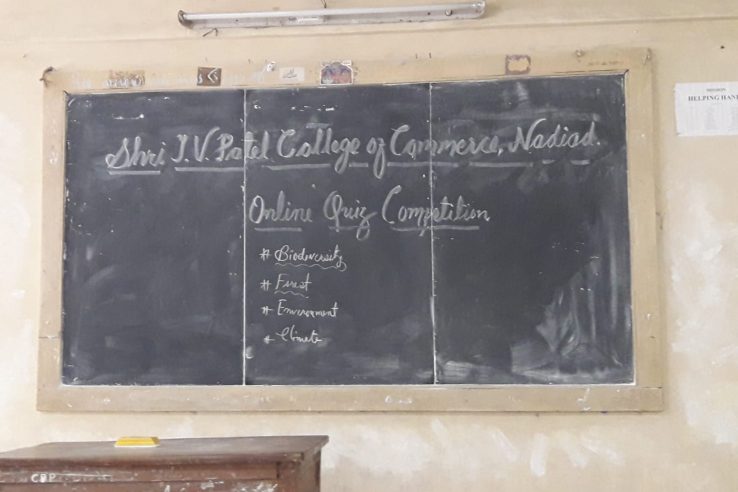 Shri J.V. Patel College of Commerce, Nadiad.
Online Quiz Competition
# Biodiversity
# Forest
# Environment
* Climate
HELPING HAN
CDP